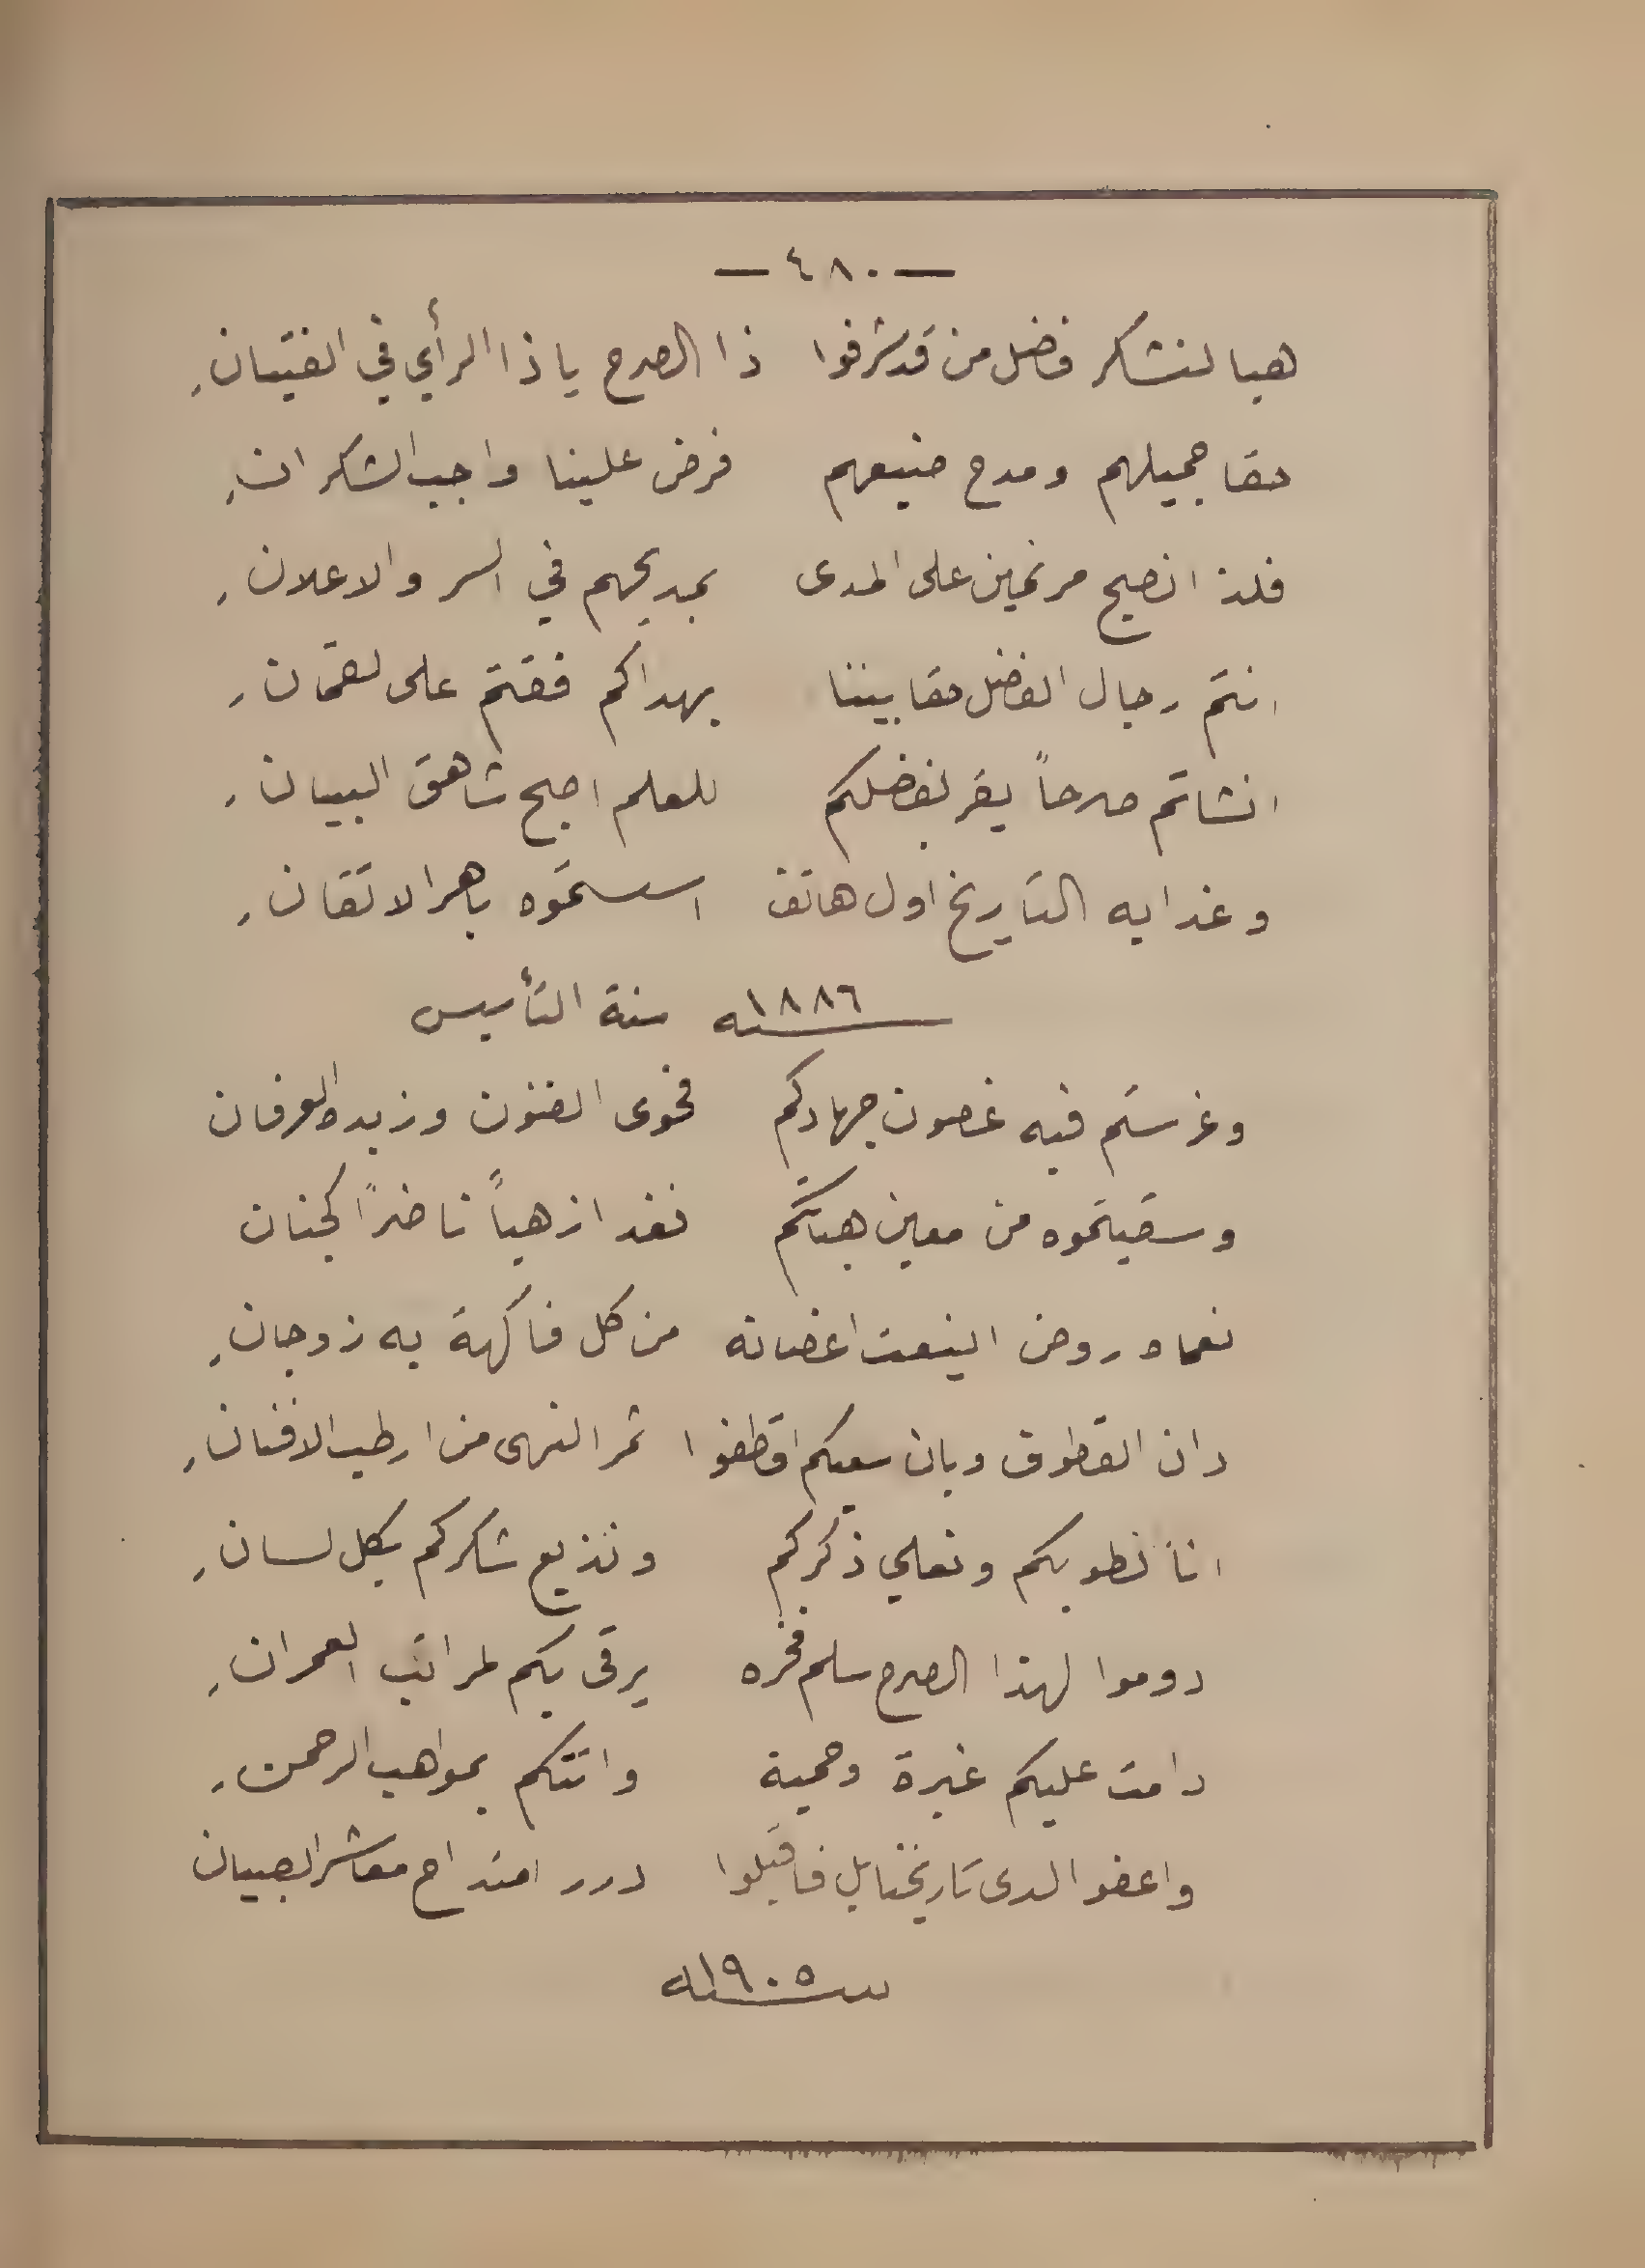 — ٤٨٠ —
هيا لنشكر فضل من قد شرفوا ذا الصرح يا ذا الرأي في الفتيان
حقا جميلهم ومدح صنيعهم فرض علينا واجب الشكران
فلذا نصيح مرنمين على المدى بمديحهم في السر والاعلان
انتم رجال الفضل حقا بيننا بهداكم فقتم على لقمان
انشاتم صرحاً يقر بفضلكم للعلم اصبح شاهق البنيان
وغدا به التاريخ اول هاتف اسستموه باهر الاتقان
سنة ١٨٨٦ سنة التأسيس
وغرستم فيه غصون جهادكم فحوى الفنون وزبدة العرفان
وسقيتموه من معين هباتكم فغدا زهياً ناضراً كجنان
نعماه روض اينعت اغصانه من كل فاكهة به زوجان
دان القطوف وبان سعيكم اقطفوا ثمر النهى من ارطب الافنان
انا نطوبكم ونعلي ذكركم ونذيع شكركم بكل لسان
دوموا لهذا الصرح سلم فخره يرقى بكم لمراتب العمران
دامت عليكم غيرة وحمية واتتكم بمواهب الرحمن
واعفوا لدى تاريخنا بل فاقبلوا درر امتداح معاشر الصبيان
سنة ١٩٠٥